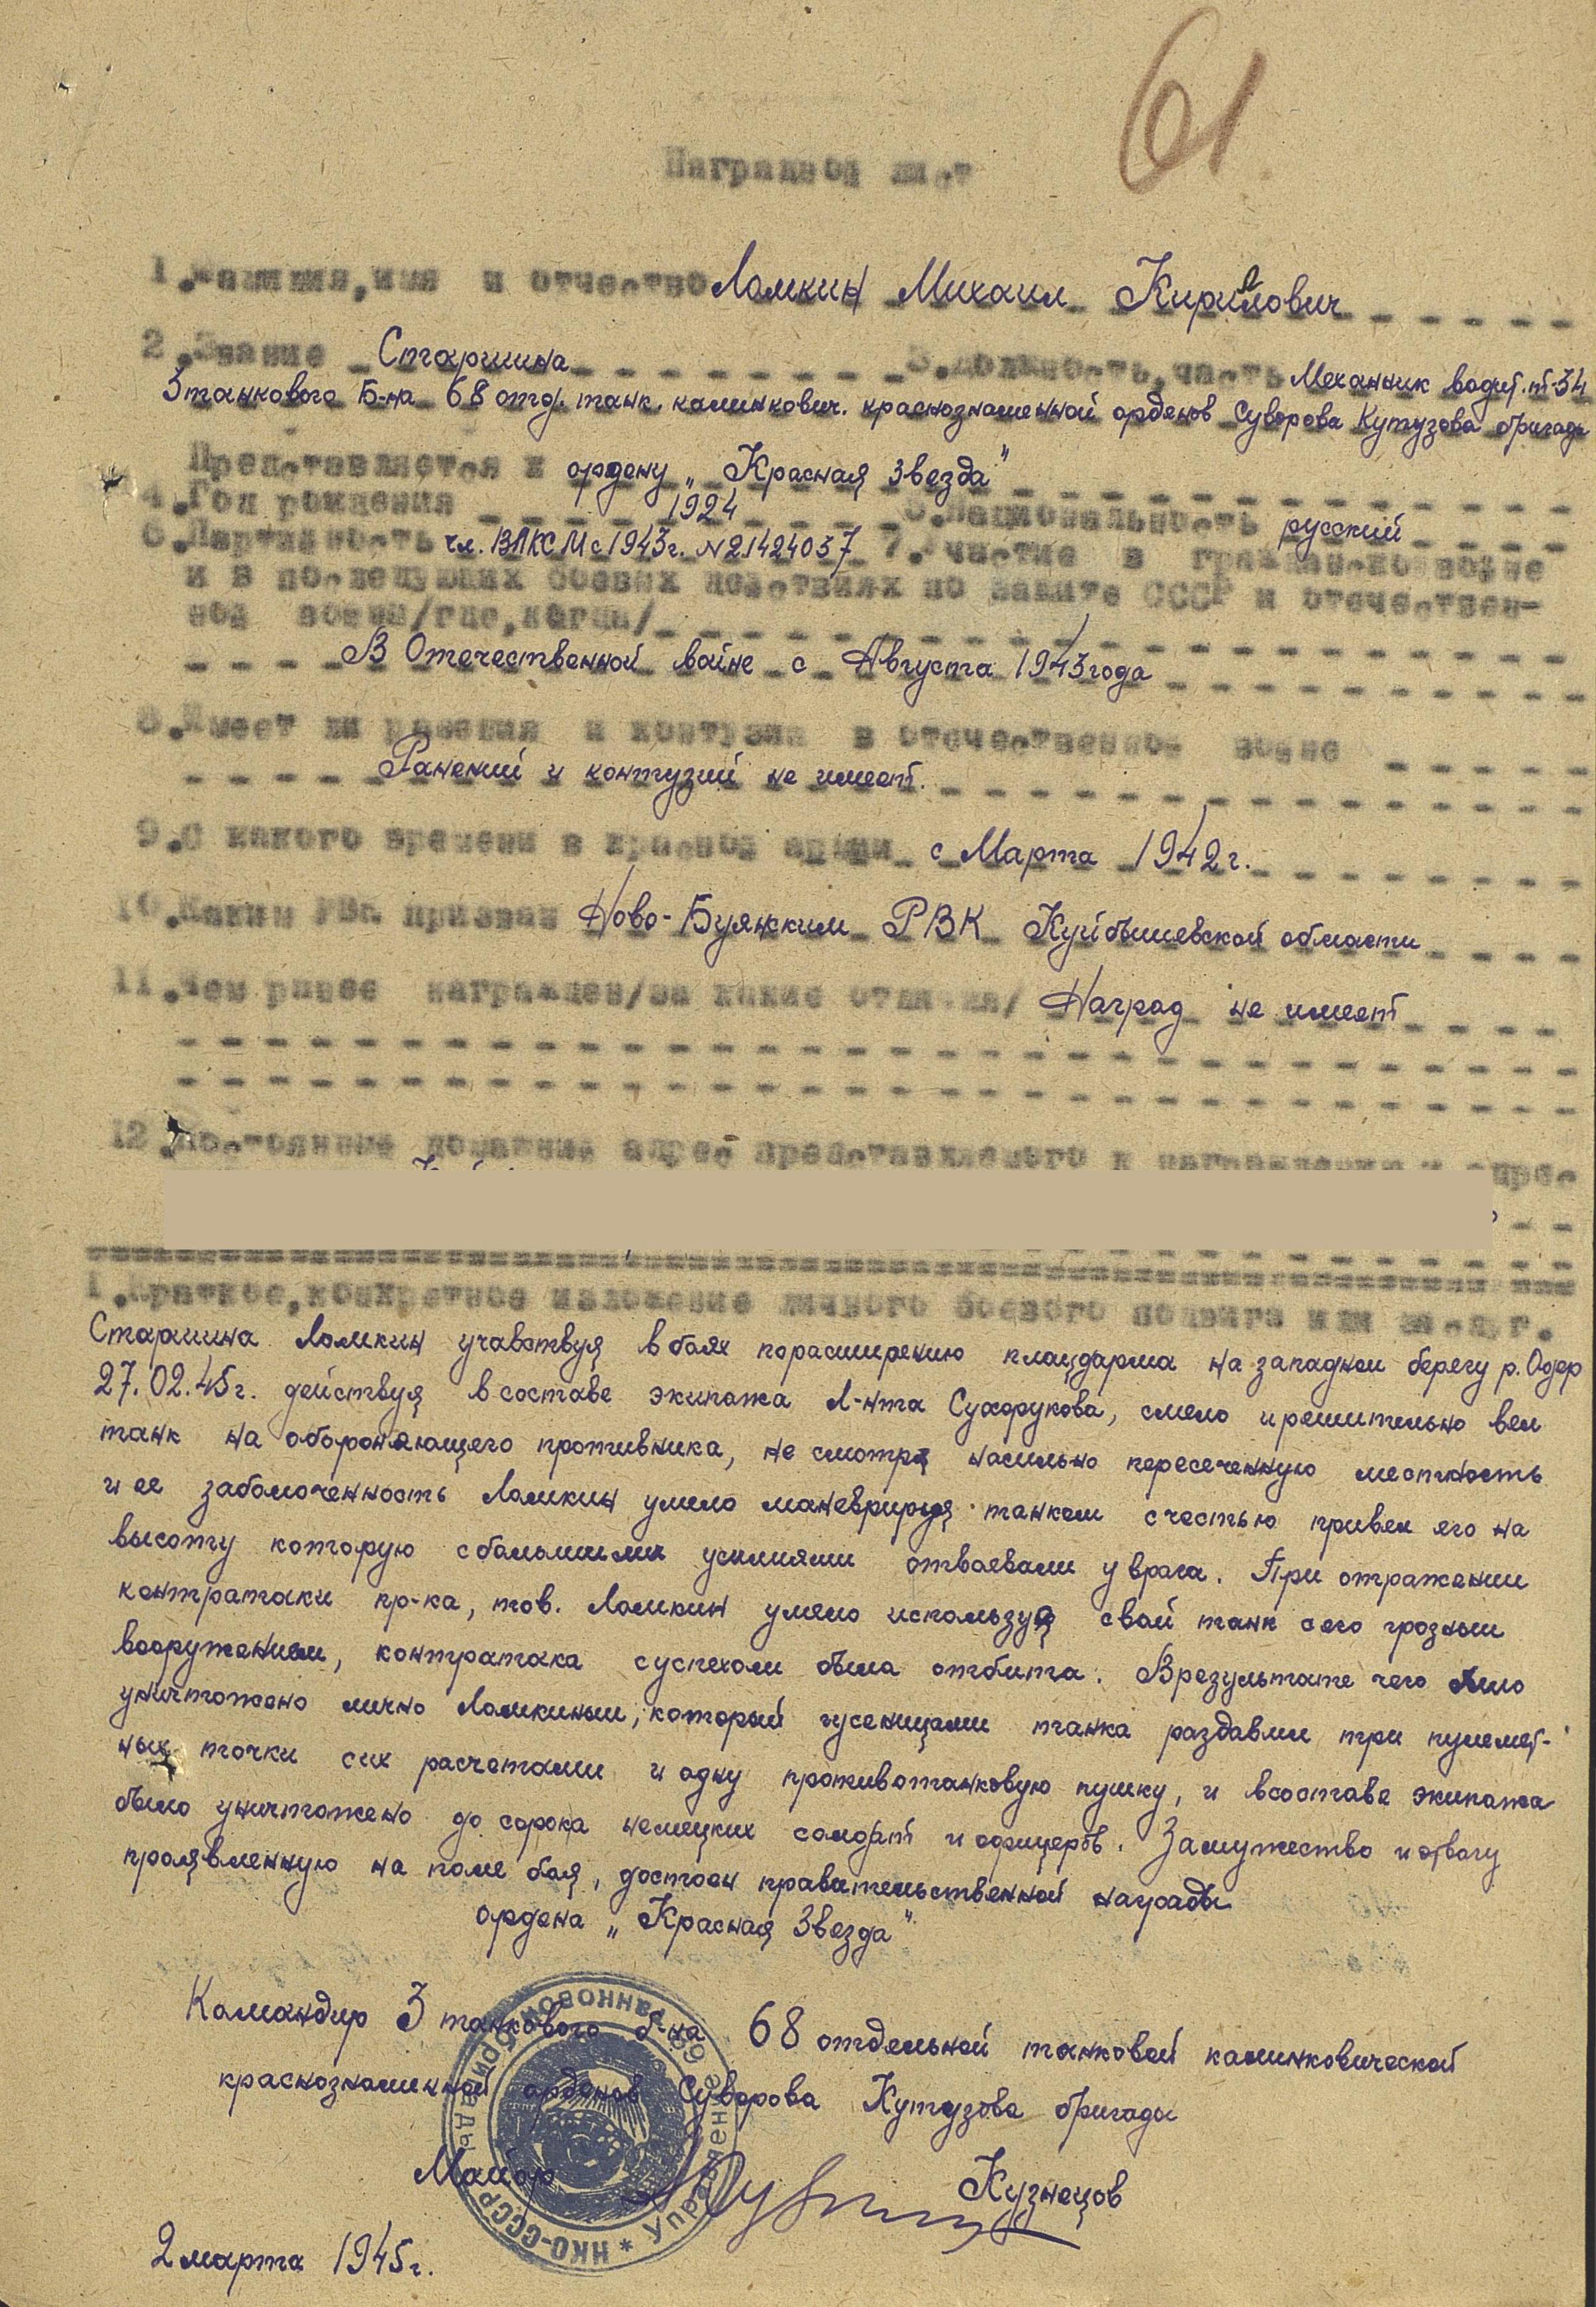 61
Наградной лист
1.Фамилия,имя и отчество Ломкин Михаил Кирилович
2.Звание Старшина 3.Должность,часть Механник водит. т-34
3 танкового Б-на 68 отд. танк. калинкович. краснознаменной орденов Суворова Кутузова бригады
Представляется к ордену „Красная Звезда"
4.Год рождения 1924 5.Национальность русский
6.Партийность чл. ВЛКСМ с 1943г. №21424037 7.Участие в гражданской войне
и в последующих боевых действиях по защите СССР и отечествен-
ной войны/где,когда/
В Отечественной войне с Августа 1943 года
8.Имеет ли ранения и контузии в отечественной войне
Ранений и контузий не имеет.
9.С какого времени в красной армии с Марта 1942г.
10.Каким РВК призван Ново-Буянским РВК Куйбышевской области
11.Чем ранее награжден/за какие отличия/ Наград не имеет
12.Постоянный домашний адрес представляемого к награждению и адрес
1.Краткое,конкретное изложение личного боевого подвига или заслуг.
Старшина Ломкин учавствуя в боях по расширению плацдарма на западном берегу р. Одер
27.02.45г. действуя в составе экипажа Л-нта Сухорукова, смело и решительно вел
танк на обороняющего противника, не смотря на сильно пересеченную местность
и ее заболоченность Ломкин умело маневрируя танком с честью привел его на
высоту которую с большими усилиями отвоевали у врага. При отражении
контратаки пр-ка, тов. Ломкин умело используя свой танк с его грозным
вооружением, контратака с успехом была отбита. В результате чего было
уничтожено лично Ломкиным, который гусеницами танка раздавил три пулемет-
ных точки с их расчетами и одну противотанковую пушку, и в составе экипажа
было уничтожено до сорока немецких солдат и офицеров. За мужество и отвагу
проявленную на поле боя, достоен правительственной награды
ордена „Красная Звезда"
Командир 3 танкового б-на 68 отдельной танковой калинковической
краснознаменной орденов Суворова Кутузова бригады
Майор Кузнецов
НКО-СССР * Управление 68 танковой бригады
2 марта 1945г.